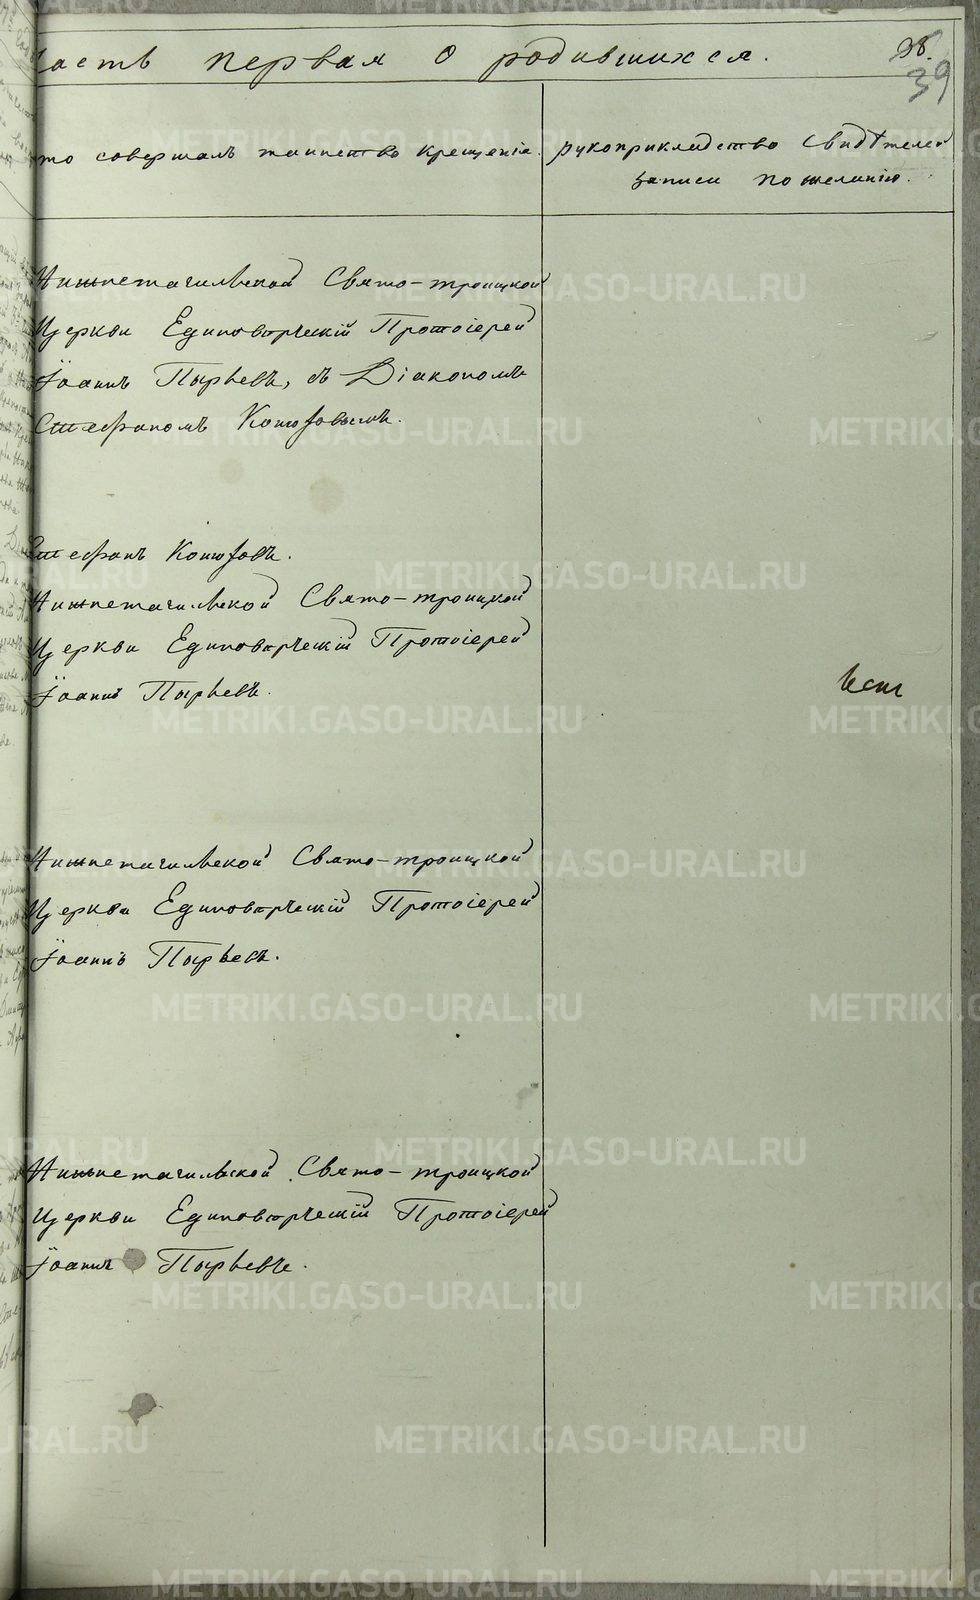 Часть первая о родившихся.
38.
39
Кто совершалъ таинство крещенія.
Рукоприкладство свидѣтелей
записи по желанію.
Нижнетагильской Свято-троицкой
Церкви Единовѣрческій Протоіерей
Іоаннъ Пырьевъ, съ Діакономъ
Стефаномъ Конюховымъ.
Стефанъ Конюховъ.
Нижнетагильской Свято-троицкой
Церкви Единовѣрческій Протоіерей
Іоаннъ Пырьевъ.
Нижнетагильской Свято-троицкой
Церкви Единовѣрческій Протоіерей
Іоаннъ Пырьевъ.
Нижнетагильской Свято-троицкой
Церкви Единовѣрческій Протоіерей
Іоаннъ Пырьевъ.
METRIKI.GASO-URAL.RU